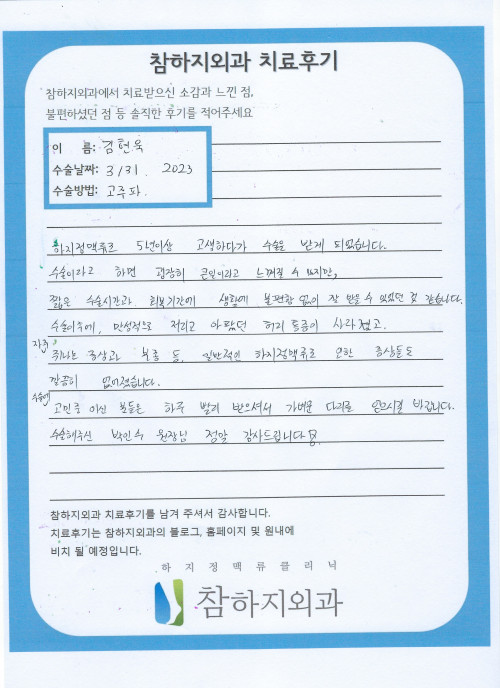 참하지외과 치료후기
참하지외과에서 치료받으신 소감과 느낀 점,
불편하셨던 점 등 솔직한 후기를 적어주세요
이 름: 김현욱
수술날짜: 3/31. 2023
수술방법: 고주파.
하지정맥류로 5년이상 고생하다가 수술을 받게 되었습니다.
수술이라고 하면 굉장히 큰일이라고 느껴질 수 있지만,
짧은 수술시간과 회복기간에 생활에 불편함 없이 잘 받을 수 있었던 것 같습니다.
수술이후에, 만성적으로 저리고 아팠던 허리 통증이 사라졌고.
자주
쥐나는 증상과 부종 등, 일반적인 하지정맥류로 인한 증상들도
깔끔히 없어졌습니다.
수술에
고민중이신 분들은 하루 빨리 받으셔서 가벼운 다리를 얻으시길 바랍니다.
수술해주신 박인수 원장님 정말 감사드립니다
참하지외과 치료후기를 남겨 주셔서 감사합니다.
치료후기는 참하지외과의 블로그, 홈페이지 및 원내에
비치 될 예정입니다.
하지정맥류클리닉
참하지외과